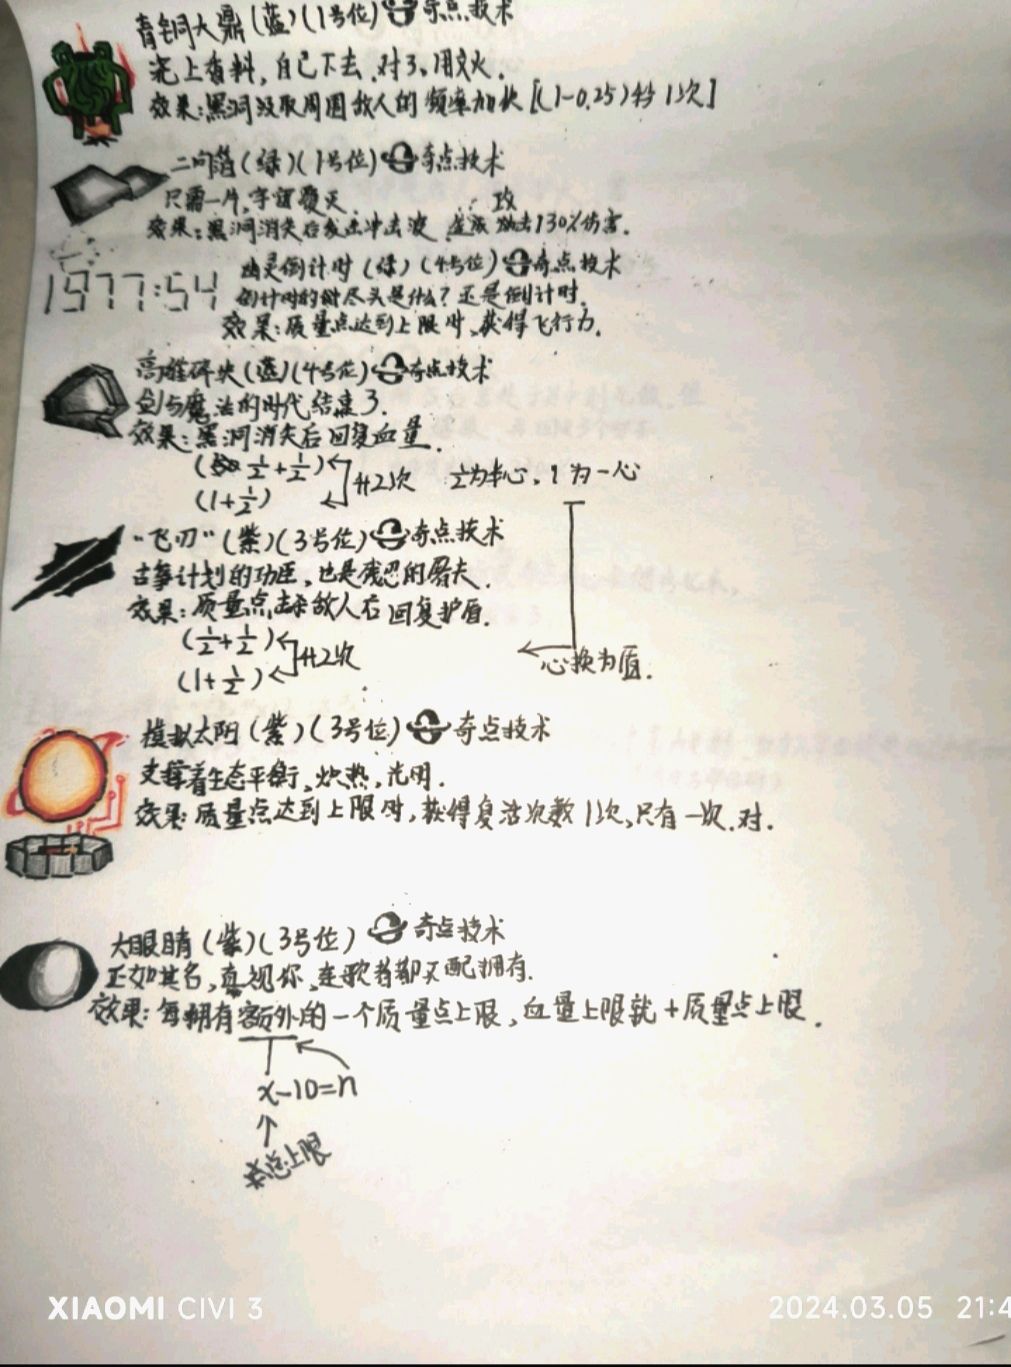 青铜大鼎(蓝)(1号位) 奇点技术
浇上香料,自己下去.对了,用文火.
效果:黑洞汲取周围敌人的频率加快[(1-0.25)秒1次]
二向箔(绿)(1号位) 奇点技术
只需一片,宇宙覆灭.
攻
效果:黑洞消失后发出冲击波,造成 击130%伤害.
1977:54
幽灵倒计时(绿)(4号位) 奇点技术
倒计时的 尽头是什么?还是倒计时.
效果:质量点达到上限时,获得飞行力.
高维碎块(蓝)(4号位) 奇点技术
剑与魔法的时代结束了.
效果:黑洞消失后回复血量.
(½+½)
(1+½)
共2次 ½为半心,1为一心
"飞刃"(紫)(3号位) 奇点技术
古筝计划的功臣,也是残忍的屠夫.
效果:质量点击杀敌人后回复护盾.
(½+½)
(1+½)
共2次
心换为盾.
模拟太阳(紫)(3号位) 奇点技术
支撑着生态平衡,炽热,光明.
效果:质量点达到上限时,获得复活次数1次,只有一次.对.
大眼睛(紫)(3号位) 奇点技术
正如其名,直视你,连歌者都不配拥有.
效果:每拥有额外的一个质量点上限,血量上限就+质量点上限.
x-10=n
总上限
XIAOMI CIVI 3
2024.03.05 21:4